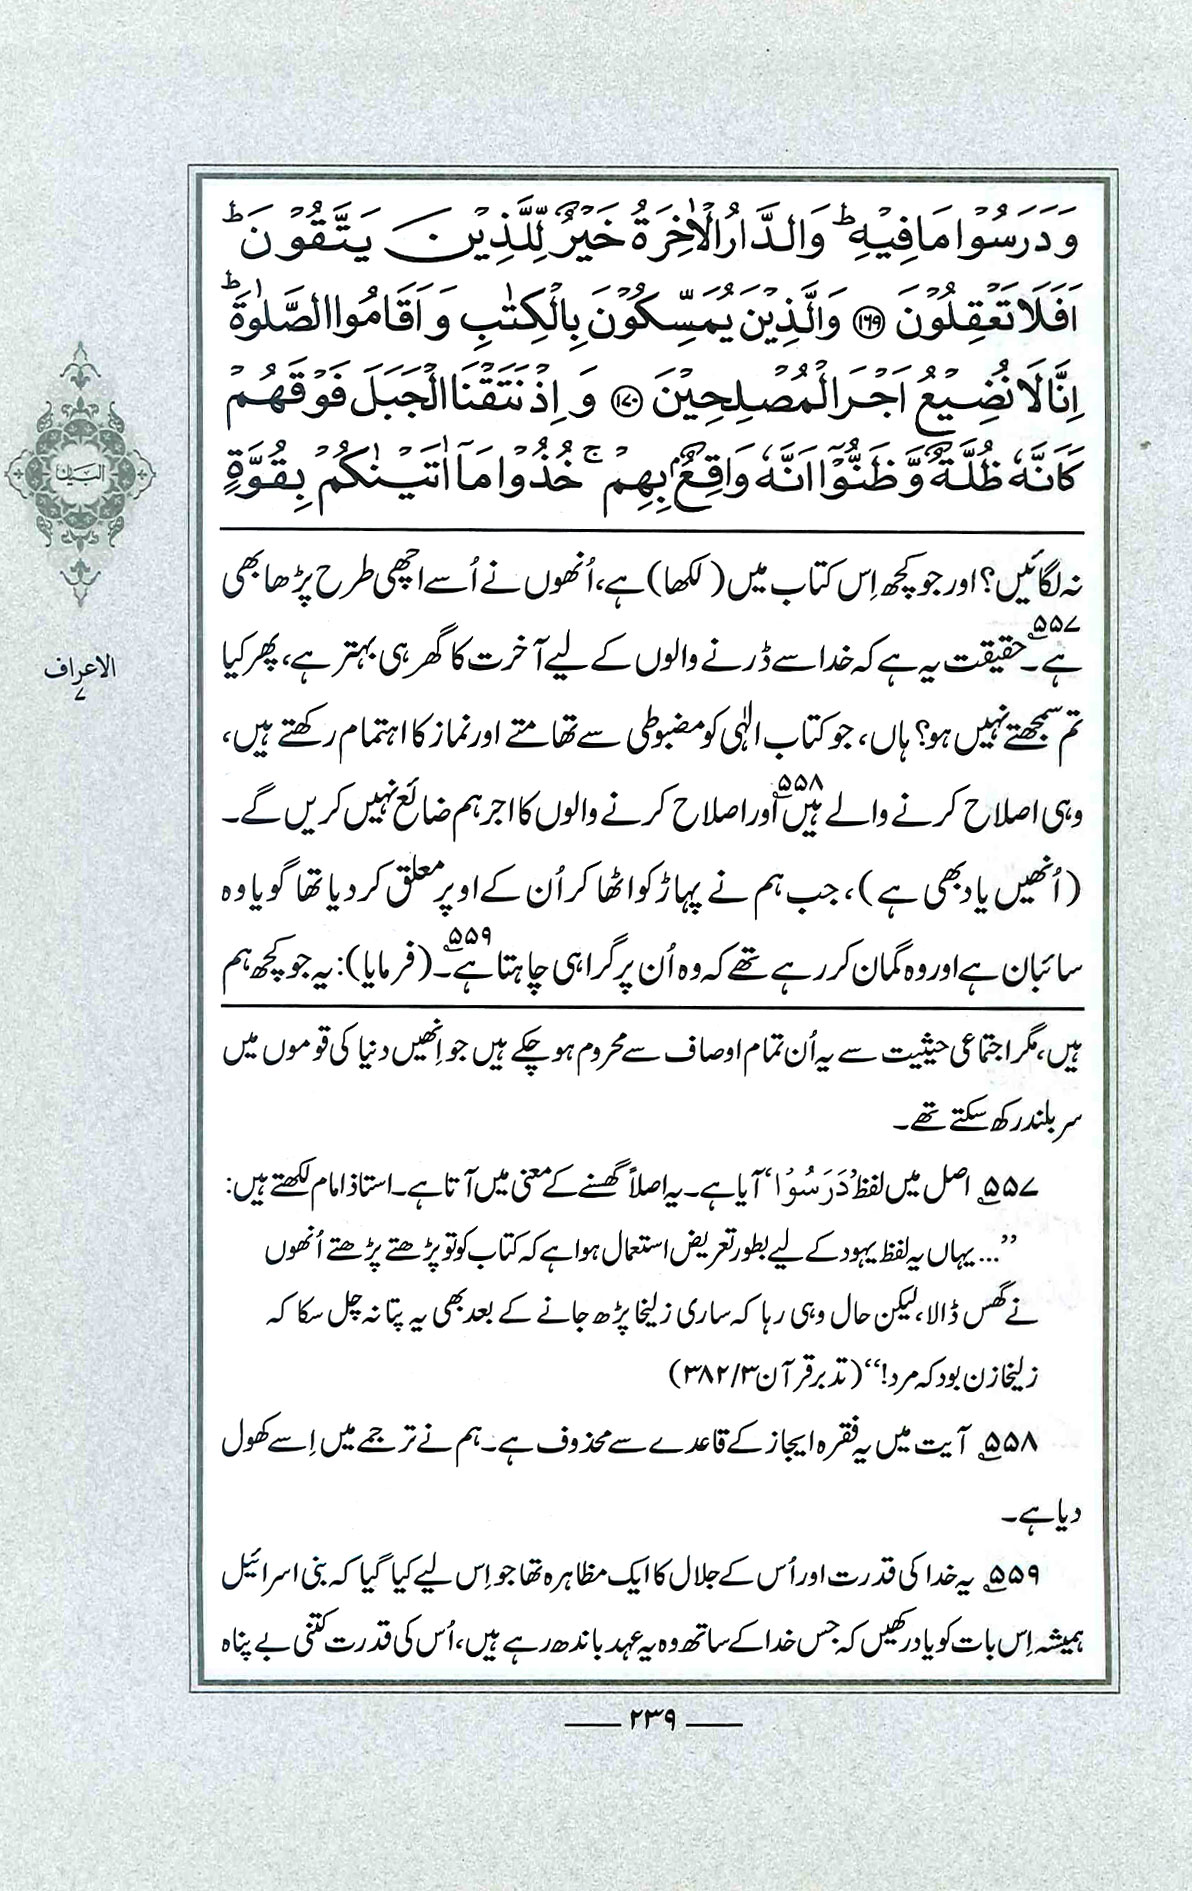 وَدَرَسُوْا مَا فِيْهِ ؕ وَالدَّارُ الْاٰخِرَةُ خَيْرٌ لِّلَّذِيْنَ يَتَّقُوْنَ ؕ
اَفَلَا تَعْقِلُوْنَ ﴿١٦٩﴾ وَالَّذِيْنَ يُمَسِّكُوْنَ بِالْكِتٰبِ وَ اَقَامُوا الصَّلٰوةَ ؕ
اِنَّا لَا نُضِيْعُ اَجْرَ الْمُصْلِحِيْنَ ﴿١٧٠﴾ وَ اِذْ نَتَقْنَا الْجَبَلَ فَوْقَهُمْ
كَاَنَّهٗ ظُلَّةٌ وَّ ظَنُّوْٓا اَنَّهٗ وَاقِعٌۢ بِهِمْ ۚ خُذُوْا مَآ اٰتَيْنٰكُمْ بِقُوَّةٍ
نہ لگائیں؟ اور جو کچھ اِس کتاب میں (لکھا) ہے، اُنھوں نے اُسے اچھی طرح پڑھا بھی
ہے۔۵۵۷ حقیقت یہ ہے کہ خدا سے ڈرنے والوں کے لیے آخرت کا گھر ہی بہتر ہے، پھر کیا
تم سمجھتے نہیں ہو؟ ہاں، جو کتاب الٰہی کو مضبوطی سے تھامتے اور نماز کا اہتمام رکھتے ہیں،
وہی اصلاح کرنے والے ہیں۵۵۸ اور اصلاح کرنے والوں کا اجر ہم ضائع نہیں کریں گے۔
(اُنھیں یاد بھی ہے)، جب ہم نے پہاڑ کو اٹھا کر اُن کے اوپر معلق کر دیا تھا گویا وہ
سائبان ہے اور وہ گمان کر رہے تھے کہ وہ اُن پر گرا ہی چاہتا ہے۔۵۵۹ (فرمایا): یہ جو کچھ ہم
ہیں، مگر اجتماعی حیثیت سے یہ اُن تمام اوصاف سے محروم ہو چکے ہیں جو اِنھیں دنیا کی قوموں میں
سر بلند رکھ سکتے تھے۔
۵۵۷ اصل میں لفظ ’دَرَسُوْا‘ آیا ہے۔ یہ اصلاً گھسنے کے معنی میں آتا ہے۔ استاذ امام لکھتے ہیں:
”... یہاں یہ لفظ یہود کے لیے بطور تعریض استعمال ہوا ہے کہ کتاب کو تو پڑھتے پڑھتے اُنھوں
نے گھس ڈالا، لیکن حال وہی رہا کہ ساری زلیخا پڑھ جانے کے بعد بھی یہ پتا نہ چل سکا کہ
زلیخا زن بود کہ مرد!“ (تدبر قرآن ۳/ ۳۸۲)
۵۵۸ آیت میں یہ فقرہ ایجاز کے قاعدے سے محذوف ہے۔ ہم نے ترجمے میں اِسے کھول
دیا ہے۔
۵۵۹ یہ خدا کی قدرت اور اُس کے جلال کا ایک مظاہرہ تھا جو اِس لیے کیا گیا کہ بنی اسرائیل
ہمیشہ اِس بات کو یاد رکھیں کہ جس خدا کے ساتھ وہ یہ عہد باندھ رہے ہیں، اُس کی قدرت کتنی بے پناہ
البیان
الاعراف
۷
۲۳۹